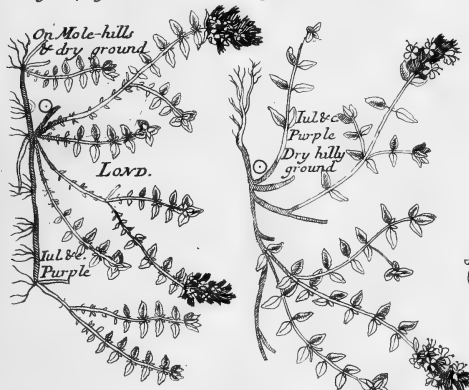 On Mole-hills
& dry ground
LOND.
Iul.&c.
Purple
Iul.&c
Purple
Dry hilly
ground